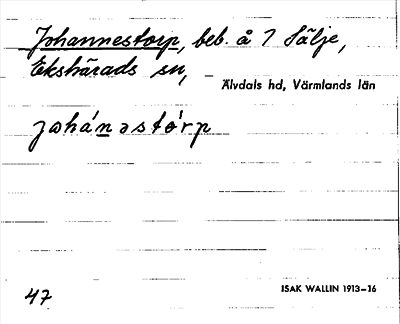 Johannestorp, beb. å 7 Sälje,
Ekshärads sn,
Älvdals hd, Värmlands län
johánəstórp
47
ISAK WALLIN 1913–16